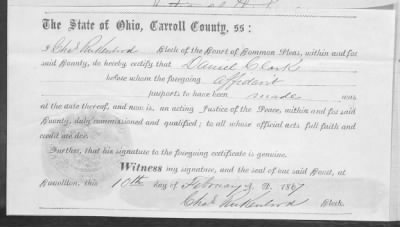 The State of Ohio, Carroll County, ss:
I Chas Rukenbrod Clerk of the Court of Common Pleas, within and for
said County, do hereby certify that Daniel Clark
before whom the foregoing Affidavit
purports to have been made was
at the date thereof, and now is, an acting Justice of the Peace, within and for said
County, duly commissioned and qualified; to all whose official acts full faith and
credit are due.
Further, that his signature to the foregoing certificate is genuine.
Witness my signature, and the seal of our said Court, at
Carrollton, this 10th day of February A. D. 1867
Chas Rukenbrod Clerk.